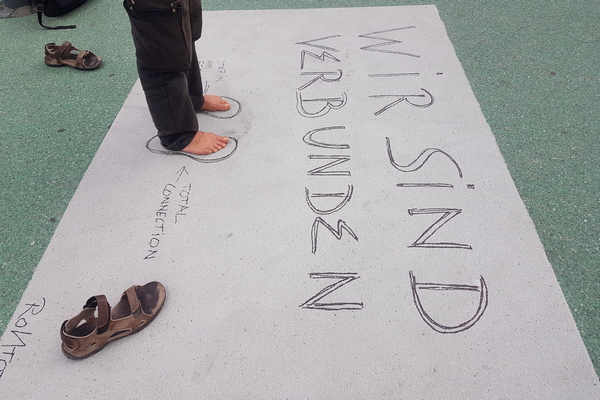 WIR SIND
VERBUNDEN
← TOTAL
CONNECTION